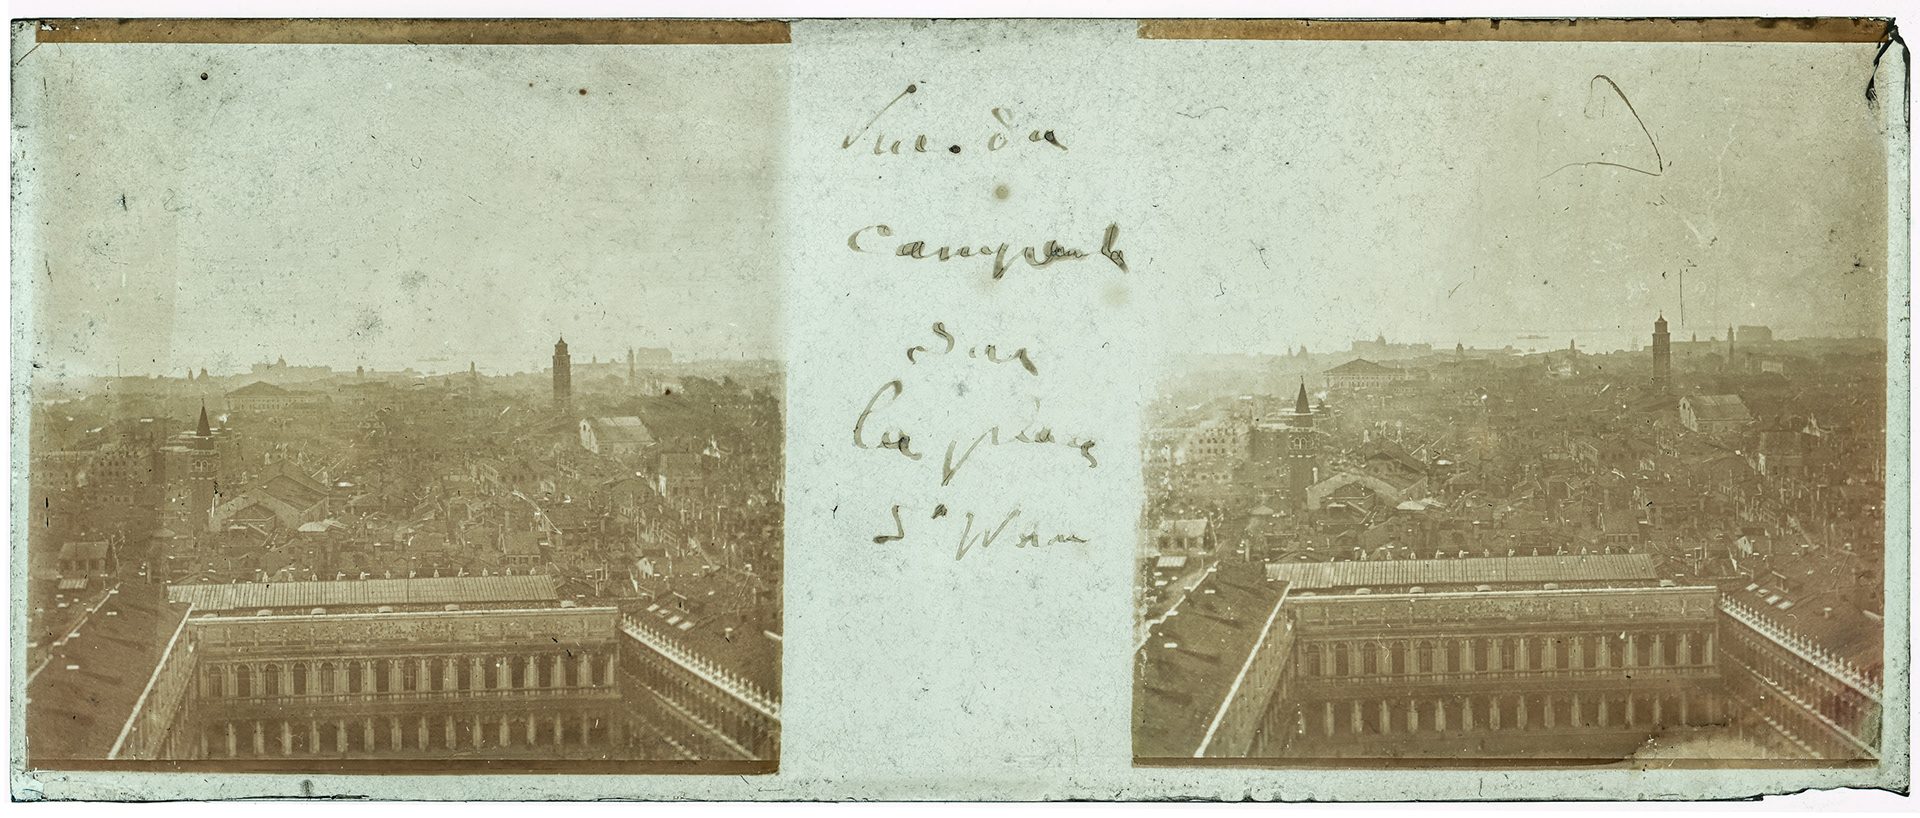 Vue du
campanile
sur
la place
St Marc